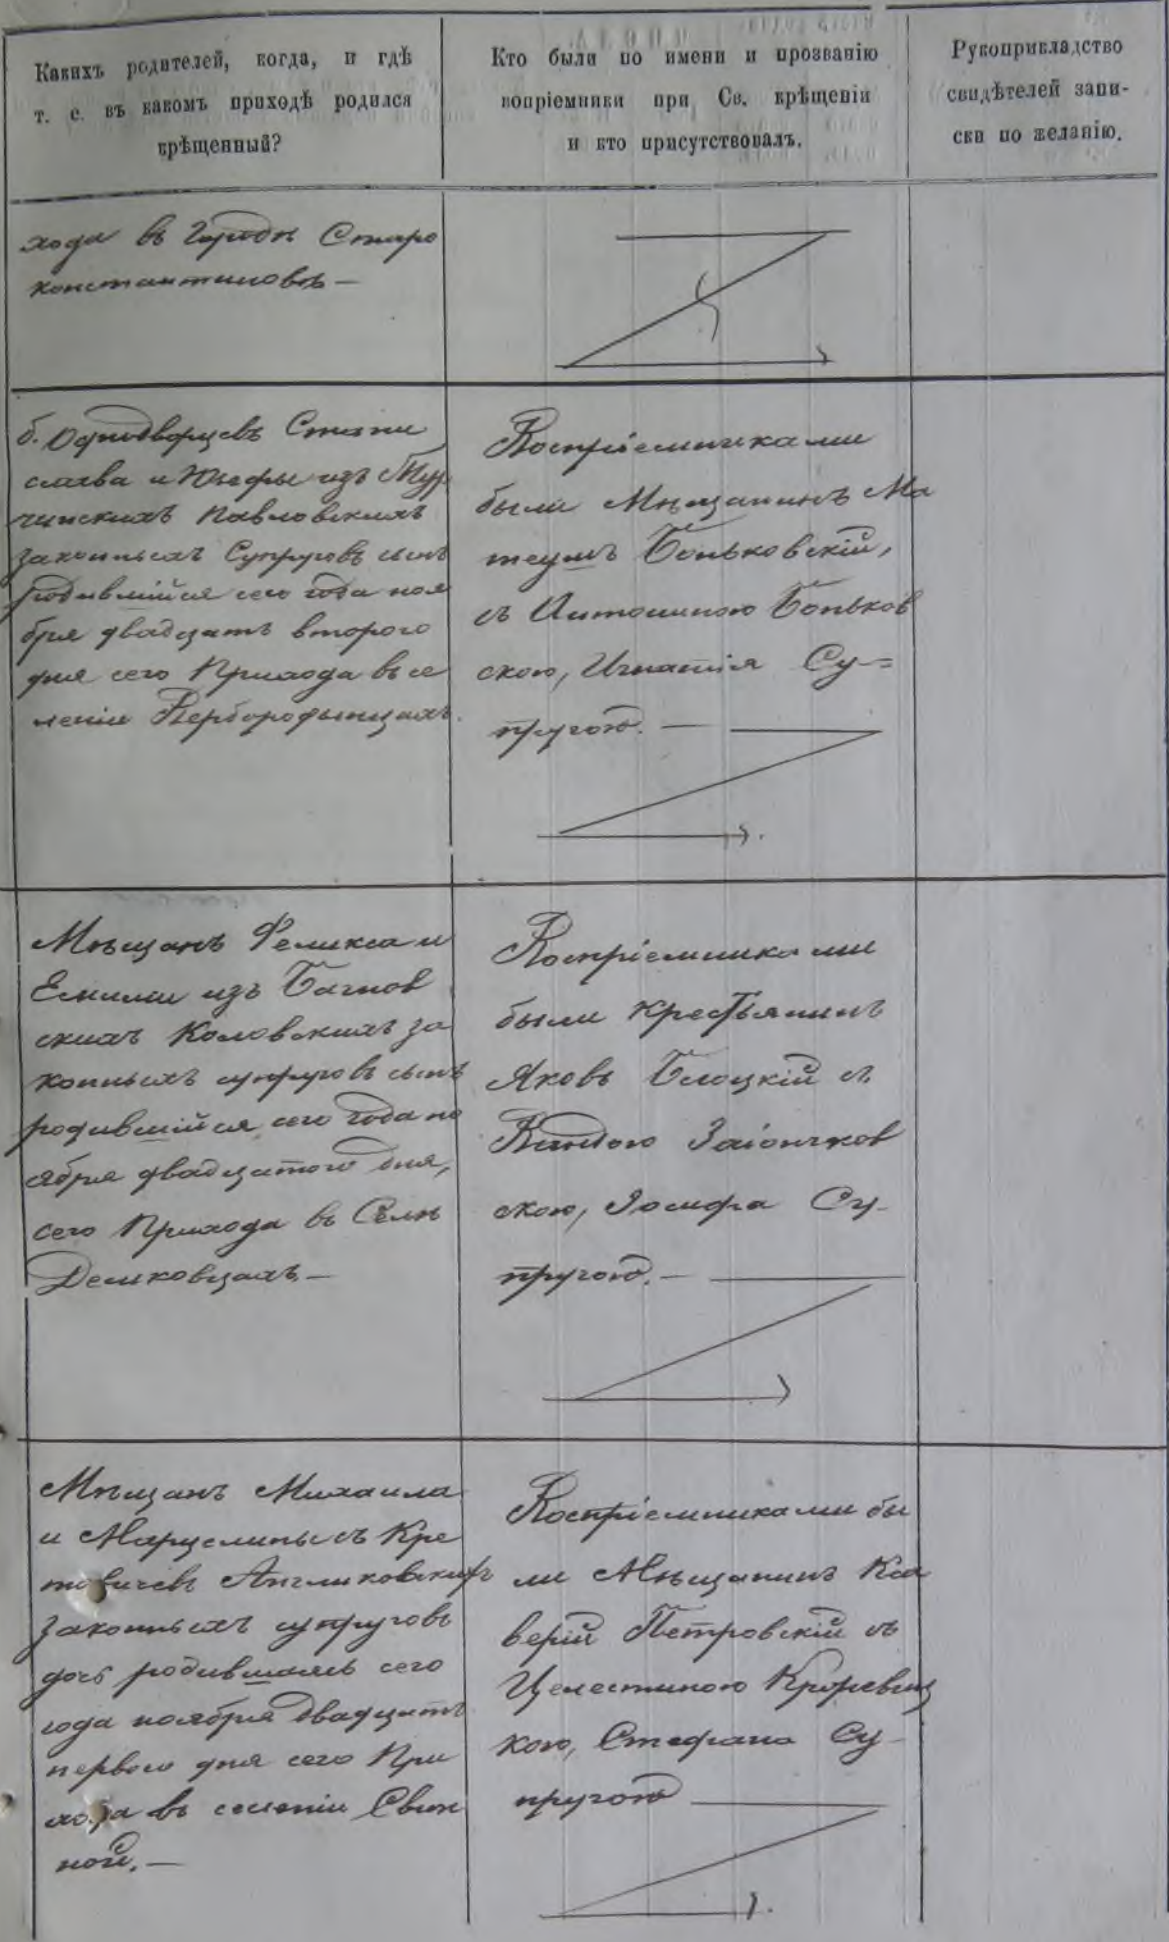 Какихъ родителей, когда, и гдѣ
т. е. въ какомъ приходѣ родился
крѣщенный?
Кто были по имени и прозванію
вопріемники при Св. крѣщеніи
и кто присутствовалъ.
Рукоприкладство
свидѣтелей запи-
ски по желанію.
хода въ Городѣ Старо
константиновѣ —
б. Однодворцевъ Стани
слава и Юзефы изъ
Павловскихъ
законныхъ Супруговъ сынъ
родившійся сего года ноя
бря двадцать второго
дня сего Прихода въ се
леніи Вербородынцахъ.
Воспріемниками
были Мѣщанинъ Ма
теушъ Боньковскій,
съ Антониною Боньков
скою, Игнатія Су-
пругою. —
Мѣщанъ Феликса и
Емиліи изъ Багнов
скихъ Коловскихъ за
конныхъ супруговъ сынъ
родившійся сего года но
ября двадцатого дня,
сего Прихода въ Селѣ
Демковцахъ —
Воспріемниками
были Крестьянинъ
Яковъ съ
Вандою Заіончков
скою, Іосифа Су-
пругою. —
Мѣщанъ Михаила
и Марцелины съ Кре
товичевъ Англиковскихъ
законныхъ супруговъ
дочь родившаясь сего
года ноября двадцать
перваго дня сего При
хода въ селеніи Свин
ной. —
Воспріемниками бы
ли Мѣщанинъ Кса
верій Петровскій съ
Целестиною
кою, Стефана Су-
пругою